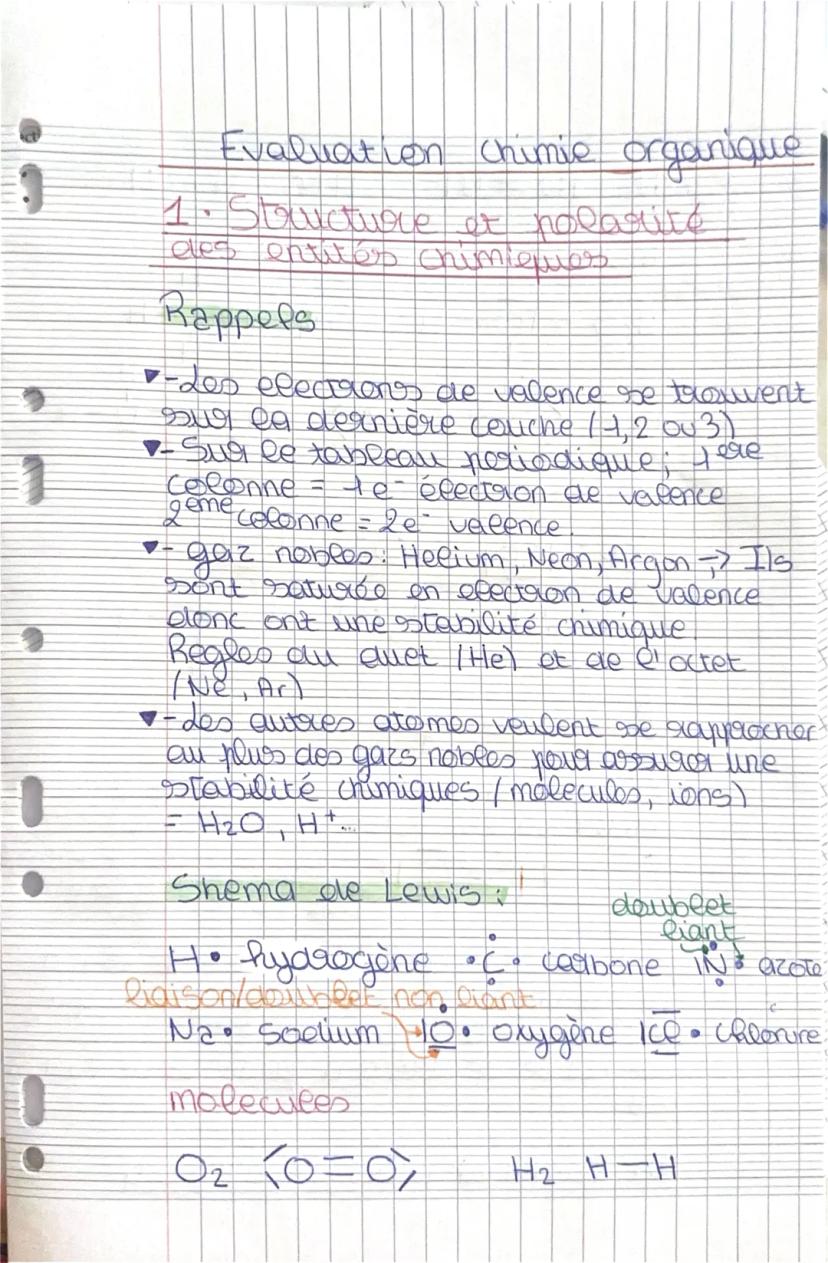 Evaluation chimie organique
1. Structure et polarité
des entités chimiques
Rappels
- Les electrons de valence se trouvent
sur la dernière couche (1, 2 ou 3)
- Sur le tableau periodique; 1ere
colonne = 1 e⁻ électron de valence
2eme colonne = 2e⁻ valence.
- gaz nobles: Helium, Neon, Argon → Ils
sont saturés en electron de valence
donc ont une stabilité chimique
Regles du duet (He) et de l'octet
(Ne, Ar)
- Les autres atomes veulent se rapprocher
au plus des gazs nobles pour assurer une
stabilité chimiques (molecules, ions)
= H2O, H⁺...
Shema de Lewis:
doublet
liant
H• hydrogène •C• carbone |N• azote
liaison/doublet non liant
Na• sodium |O• oxygène |Cl• chlore
molecules
O2 ⟨O=O⟩ H2 H—H